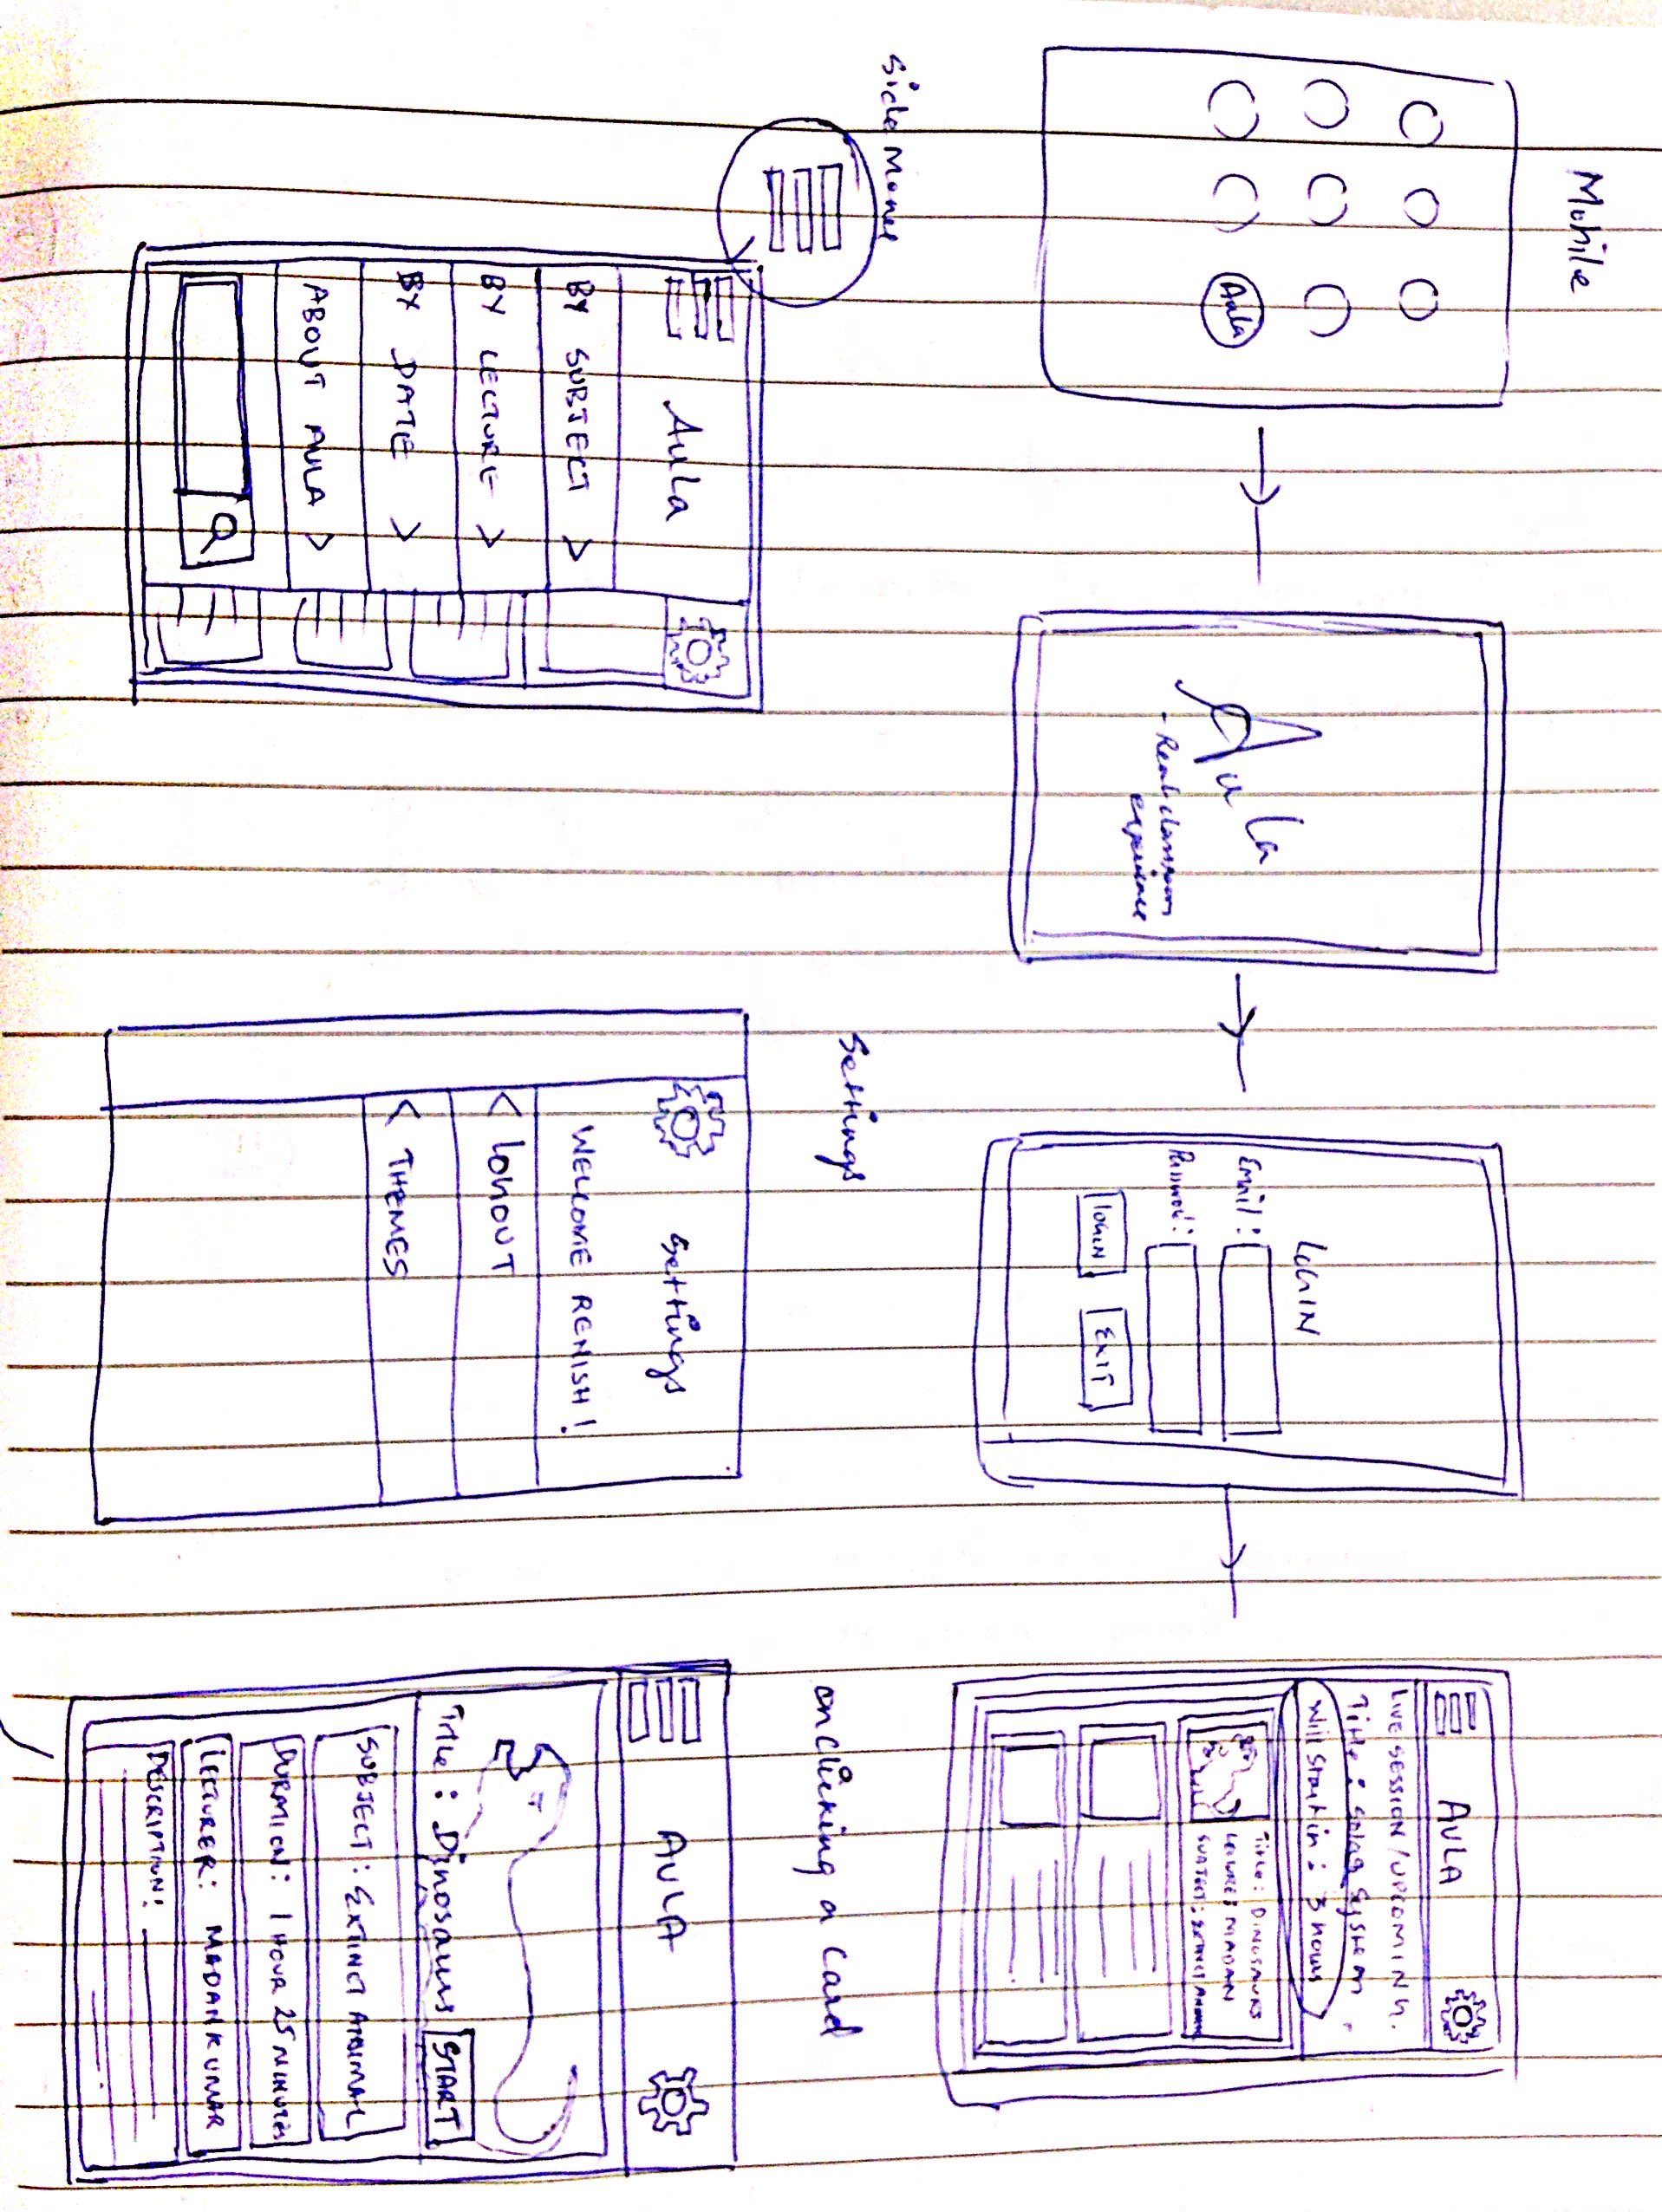 Mobile
Aula
Aula
- Real classroom
experience
LOGIN
Email :
Password :
LOGIN
EXIT
AULA
LIVE SESSION / UPCOMING.
Title : Solar System
Will Start in : 3 hours
Title : DINOSAURS
LECTURE : MADAN
SUBJECT : EXTINCT
Side Menu
Aula
BY SUBJECT >
BY LECTURE >
BY DATE >
ABOUT AULA >
Settings
Settings
WELCOME RENISH!
< LOGOUT
< THEMES
on clicking a Card
AULA
Title : Dinosaurs
START
SUBJECT : EXTINCT ANIMAL
DURATION : 1 HOUR 25 MINUTES
LECTURER : MADAN KUMAR
DESCRIPTION :